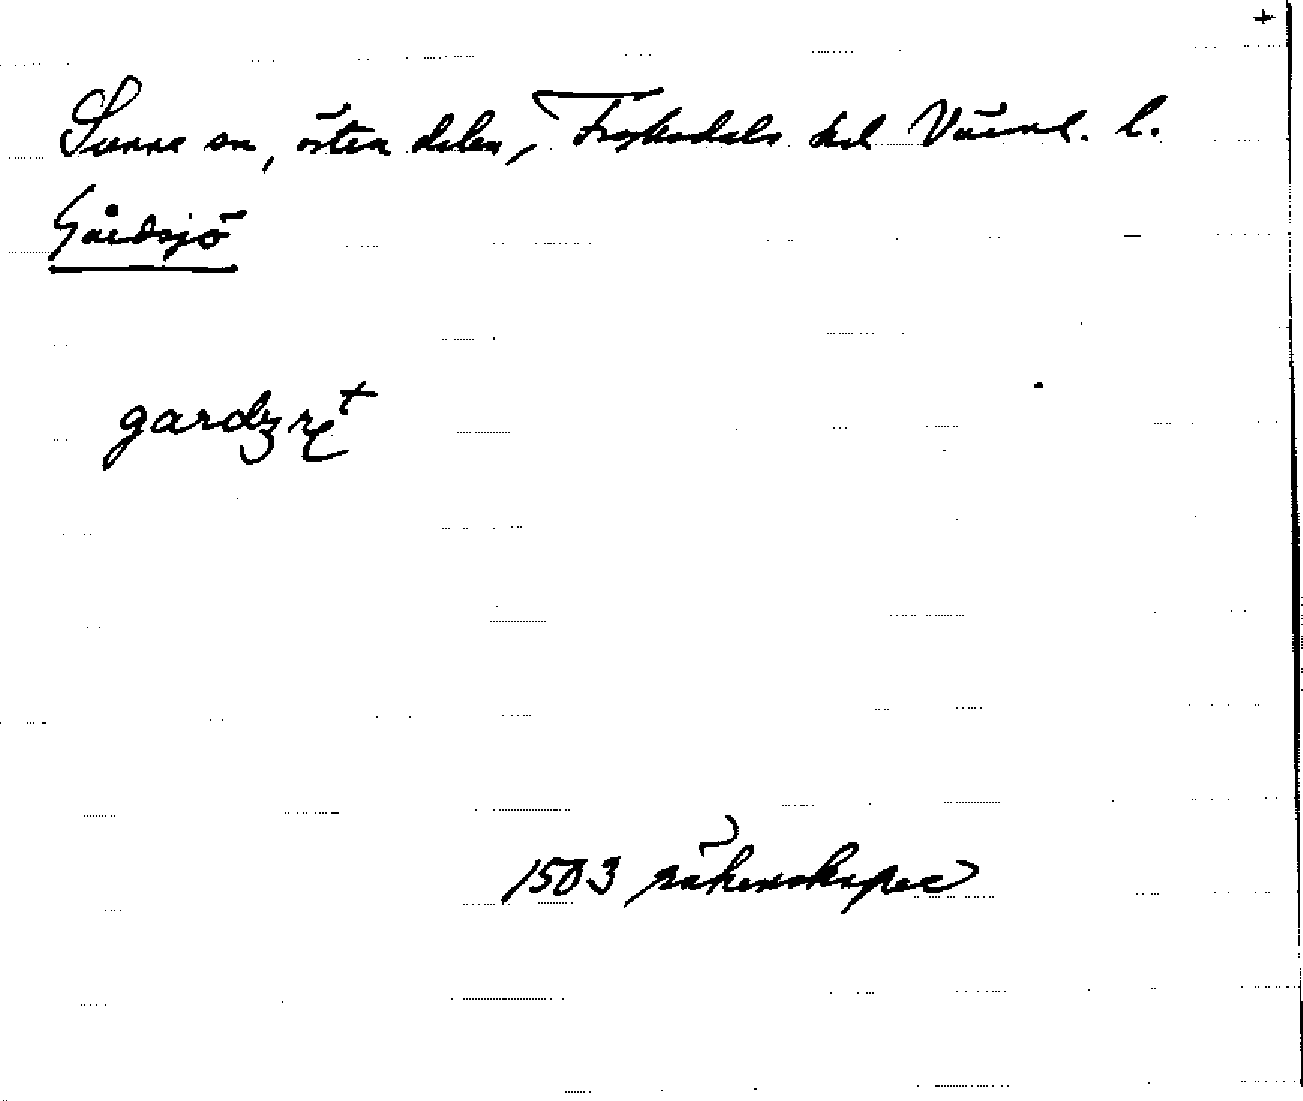 +
Sunne sn, östra delen, Fryksdals hd Värml. l.
Gårdsjö
gardz
1503 räkenskaper